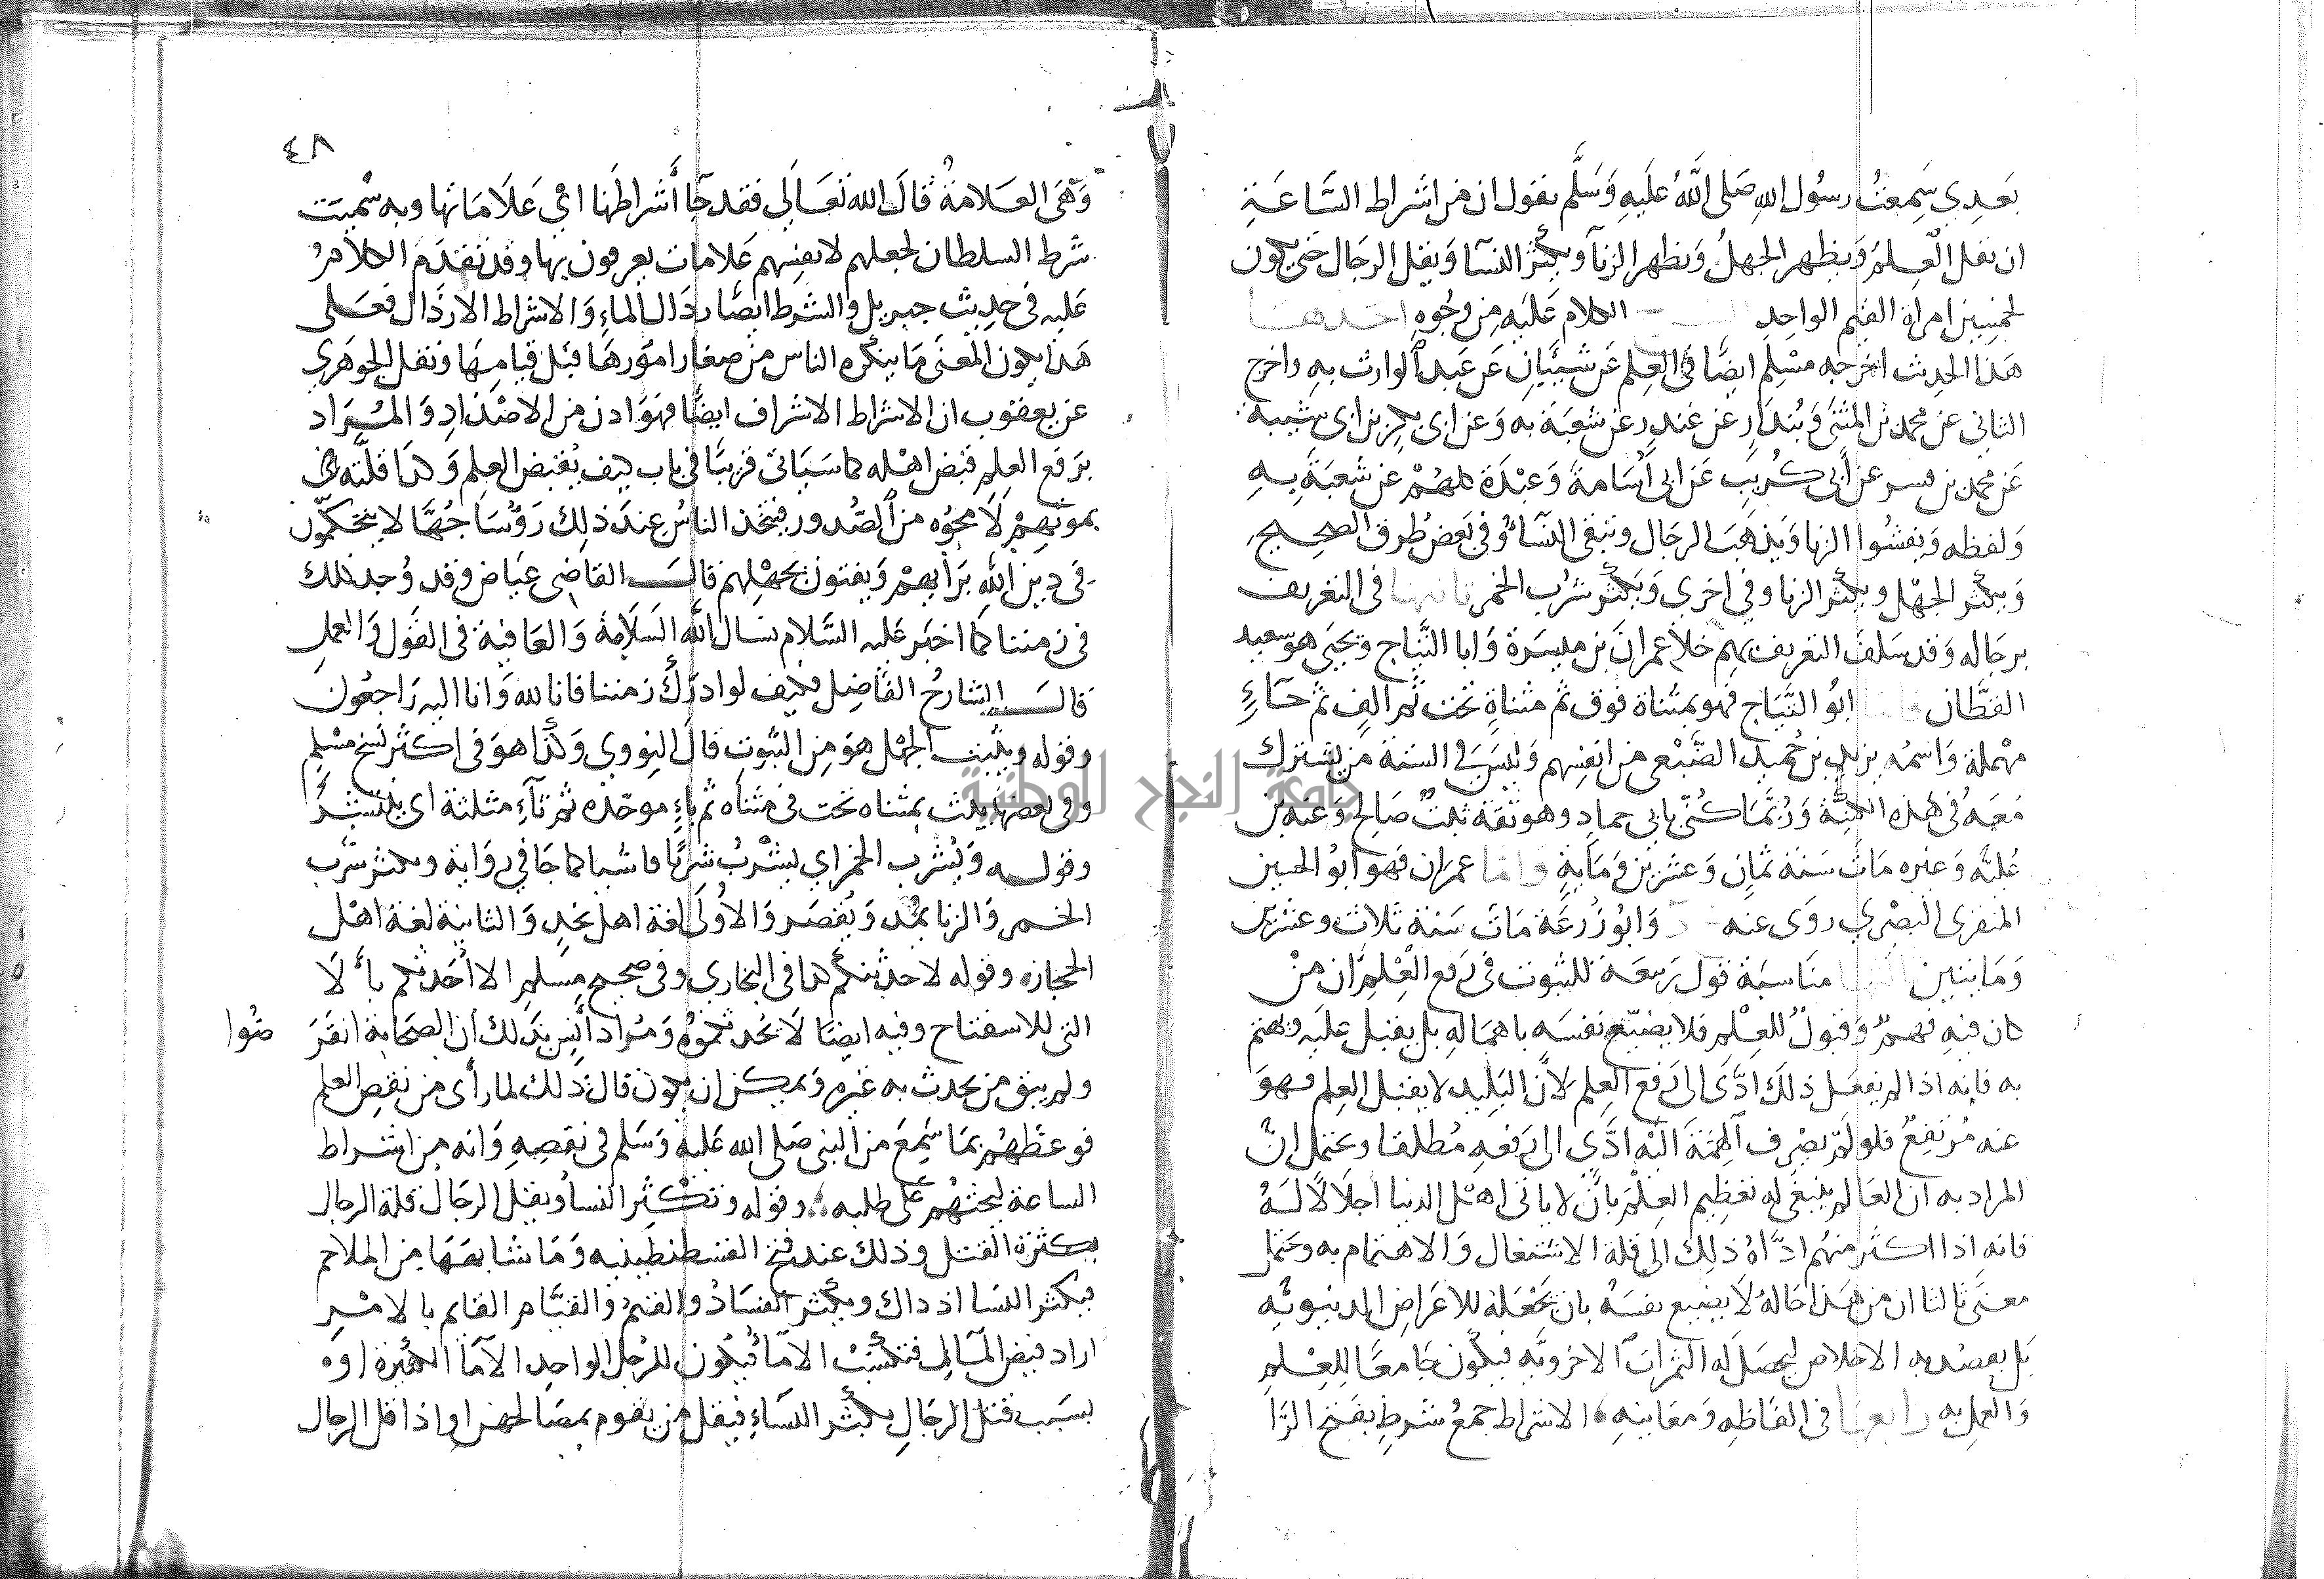 بعدي سمعت رسول الله صلى الله عليه وسلم يقول ان من اشراط الساعة
ان يقل العلم ويظهر الجهل ويظهر الزنا ويكثر النسا ويقل الرجال حتى يكون
لخمسين امراة القيم الواحد الكلام عليه من وجوه احدها
هذا الحديث اخرجه مسلم ايضا في العلم عن شيبان عن عبد الوارث به واخرج
الثاني عن محمد بن المثنى وبندار عن غندر عن شعبة به وعن ابى بكر بن ابى شيبة
عن محمد بن بسر عن أبى كريب عن ابى أسامة وعبدة كلهم عن شعبة به
ولفظه ويفشوا الزنا ويذهب الرجال وتبقى النساء وفي بعض طرق الصحيح
ويكثر الجهل ويكثر الزنا وفي اخرى ويكثر شرب الخمر ثانيها في التعريف
برجاله وقد سلف التعريف بهم خلا عمران بن ميسرة وابا التياح ويحيى هو سعيد
القطان ابو التياح فهو بمثناة فوق ثم مثناة تحت ثم الف ثم حاء
مهملة واسمه يزيد بن حميد الضبعي من انفسهم وليس في الستة من يشترك
معه في هذه الكنية وربما كنى بابي حماد وهو ثقة ثبت صالح وعنه بن
علية وغيره مات سنة ثمان وعشرين وماية واما عمران فهو ابو الحسن
المنقرى البصري روى عنه وابو زرعة مات سنة ثلاث وعشرين
وماتين مناسبة قول ربيعة للتبويب في رفع العلم ان من
كان فيه فهم وقبول للعلم فلا يضيع نفسه باهماله بل يقبل عليه ويهتم
به فانه اذا لم يفعل ذلك ادى الى رفع العلم لان البليد لا يقبل العلم فهو
عنه مرتفع فلو لم يصرف الهمة اليه ادى الى رفعه مطلقا ويحتمل ان
المراد به ان العالم ينبغي له تعظيم العلم بان لا ياتى اهل الدنيا اجلالا له
فانه اذا اكثر منهم اداه ذلك الى قلة الاشتغال والاهتمام به ويحتمل
معنى ثالثا ان من هذا حاله لا يضيع نفسه بان يجعله للاعراض الدنيوية
بل يقصد به الاخلاص ليحصل له الثمرات الاخروية فيكون جامعا للعلم
والعمل به رابعها في الفاظه ومعانيه الاشراط جمع شرط بفتح الرا
٤٨
وهى العلامة قال الله تعالى فقد جا أشراطها اى علاماتها وبه سميت
شرط السلطان لجعلهم لانفسهم علامات يعرفون بها وقد تقدم الكلام
عليه في حديث جبريل والشرط ايضا رذال المال والاشراط الارذال فعلى
هذا يكون المعنى ما ينكره الناس من صغار امورها قبل قيامها ونقل الجوهري
عن يعقوب ان الاشراط الاشراف ايضا فهو اذن من الاضداد والمراد
برفع العلم قبض اهله كما سياتى قريبا في باب كيف يقبض العلم وكذا قلته
بموتهم لا محوه من الصدور فيتخذ الناس عند ذلك رؤسا جهالا يتحكمون
في دين الله برأيهم ويفتون بجهلهم قال القاضى عياض وقد وجد ذلك
في زمننا كما اخبر عليه السلام نسال الله السلامة والعافية في القول والعمل
قال الشارح الفاضل فكيف لو ادرك زمننا فانا لله وانا اليه راجعون
وقوله ويثبت الجهل هو من الثبوت قال النووى وكذا هو في اكثر نسخ مسلم
وفي بعضها يبث بمثناه تحت في مثناه ثم باء موحده ثم ثاء مثلثة اى ينتشر
وقوله ويشرب الخمر اي يشرب شربا فاشيا كما جا في رواية ويكثر شرب
الخمر والزنا يمد ويقصر والاولى لغة اهل نجد والثانية لغة اهل
الحجازه وقوله لاحدثنكم كذا في البخاري وفي صحيح مسلم الا أحدثكم بألا
التى للاستفتاح وفيه ايضا لا يحدثكموه ومراد أنس بذلك ان الصحابة انقر
ضوا
ولم يبق من يحدث به غيره ويمكن ان يكون قال ذلك لما رأى من نقص العلم
فوعظهم بما سمع من النبى صلى الله عليه وسلم في نقصه وانه من اشراط
الساعة ليحثهم على طلبه وقوله وتكثر النسا ويقل الرجال قلة الرجال
بكثرة القتل وذلك عند فتح القسطنطينيه وما شابهها من الملاحم
فيكثر النسا اذ ذاك ويكثر الفساد والقيم والقيام القايم بالامر
اراد قبض المالك فتكسب الامآ فيكون للرجل الواحد الامآ الكثيرة اوه
بسبب قتل الرجال يكثر النساء فيقل من يقوم بمصالحهن او اذا قل الرجال
جامعة النجاح الوطنية